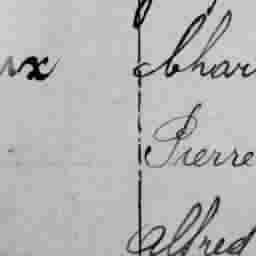 ux Char
Pierre
Alfred